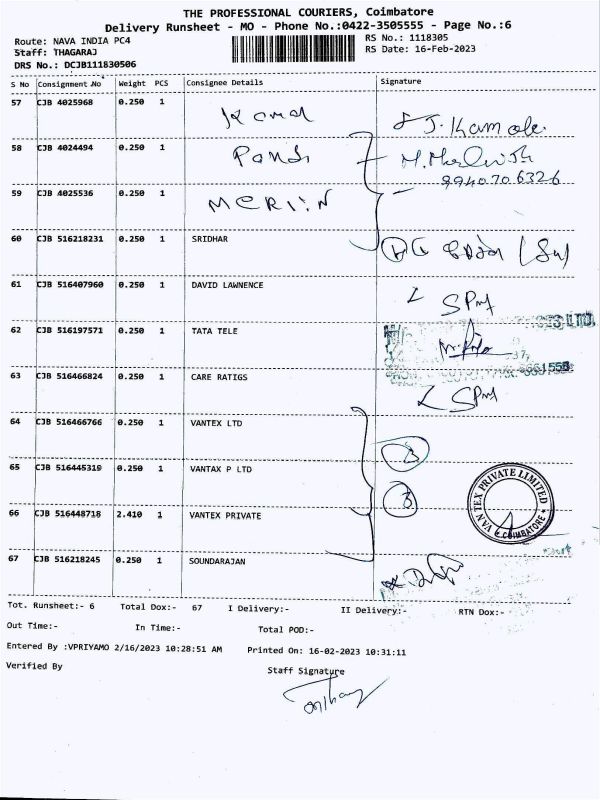 THE PROFESSIONAL COURIERS, Coimbatore
Delivery Runsheet - MO - Phone No.:0422-3505555 - Page No.:6
Route: NAVA INDIA PC4
RS No.: 1118305
Staff: THAGARAJ
RS Date: 16-Feb-2023
DRS No.: DCJB111830506
S No Consignment.No Weight PCS Consignee Details Signature
57 CJB 4025968 0.250 1 J. Kamala
58 CJB 4024494 0.250 1
9940706326
59 CJB 4025536 0.250 1 MERLIN
60 CJB 516218231 0.250 1 SRIDHAR
61 CJB 516407960 0.250 1 DAVID LAWNENCE
62 CJB 516197571 0.250 1 TATA TELE
63 CJB 516466824 0.250 1 CARE RATIGS
64 CJB 516466766 0.250 1 VANTEX LTD 3
65 CJB 516445319 0.250 1 VANTAX P LTD 3
66 CJB 516448718 2.410 1 VANTEX PRIVATE
VAN TEX PRIVATE LIMITED
COIMBATORE
67 CJB 516218245 0.250 1 SOUNDARAJAN
Tot. Runsheet:- 6 Total Dox:- 67 I Delivery:- II Delivery:- RTN Dox:-
Out Time:- In Time:- Total POD:-
Entered By :VPRIYAMO 2/16/2023 10:28:51 AM Printed On: 16-02-2023 10:31:11
Verified By
Staff Signature